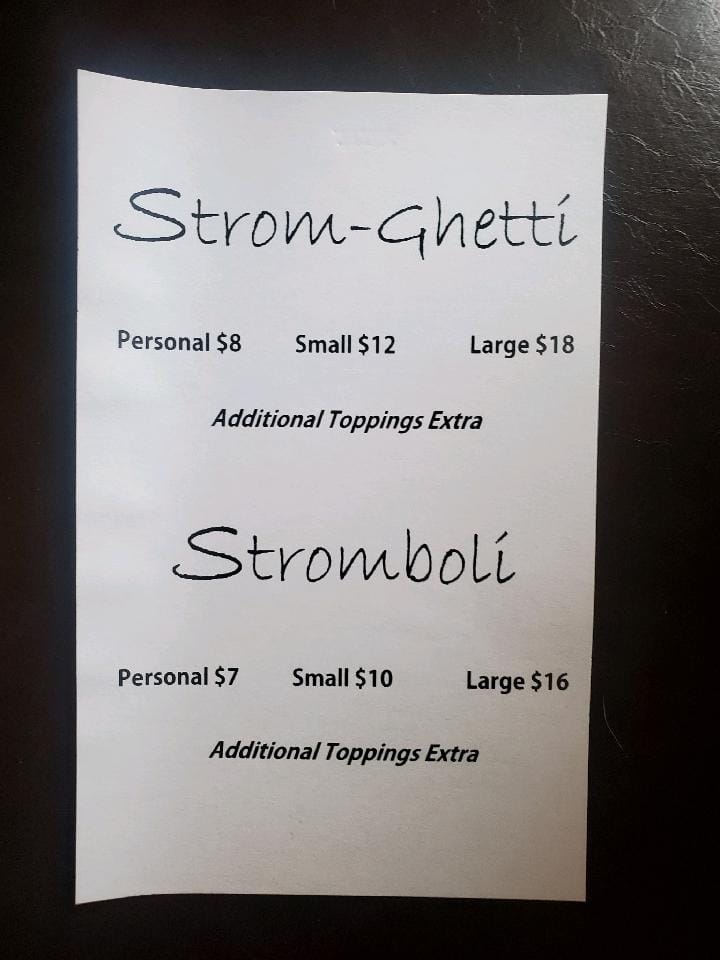 Strom-Ghetti
Personal $8 Small $12 Large $18
Additional Toppings Extra
Stromboli
Personal $7 Small $10 Large $16
Additional Toppings Extra